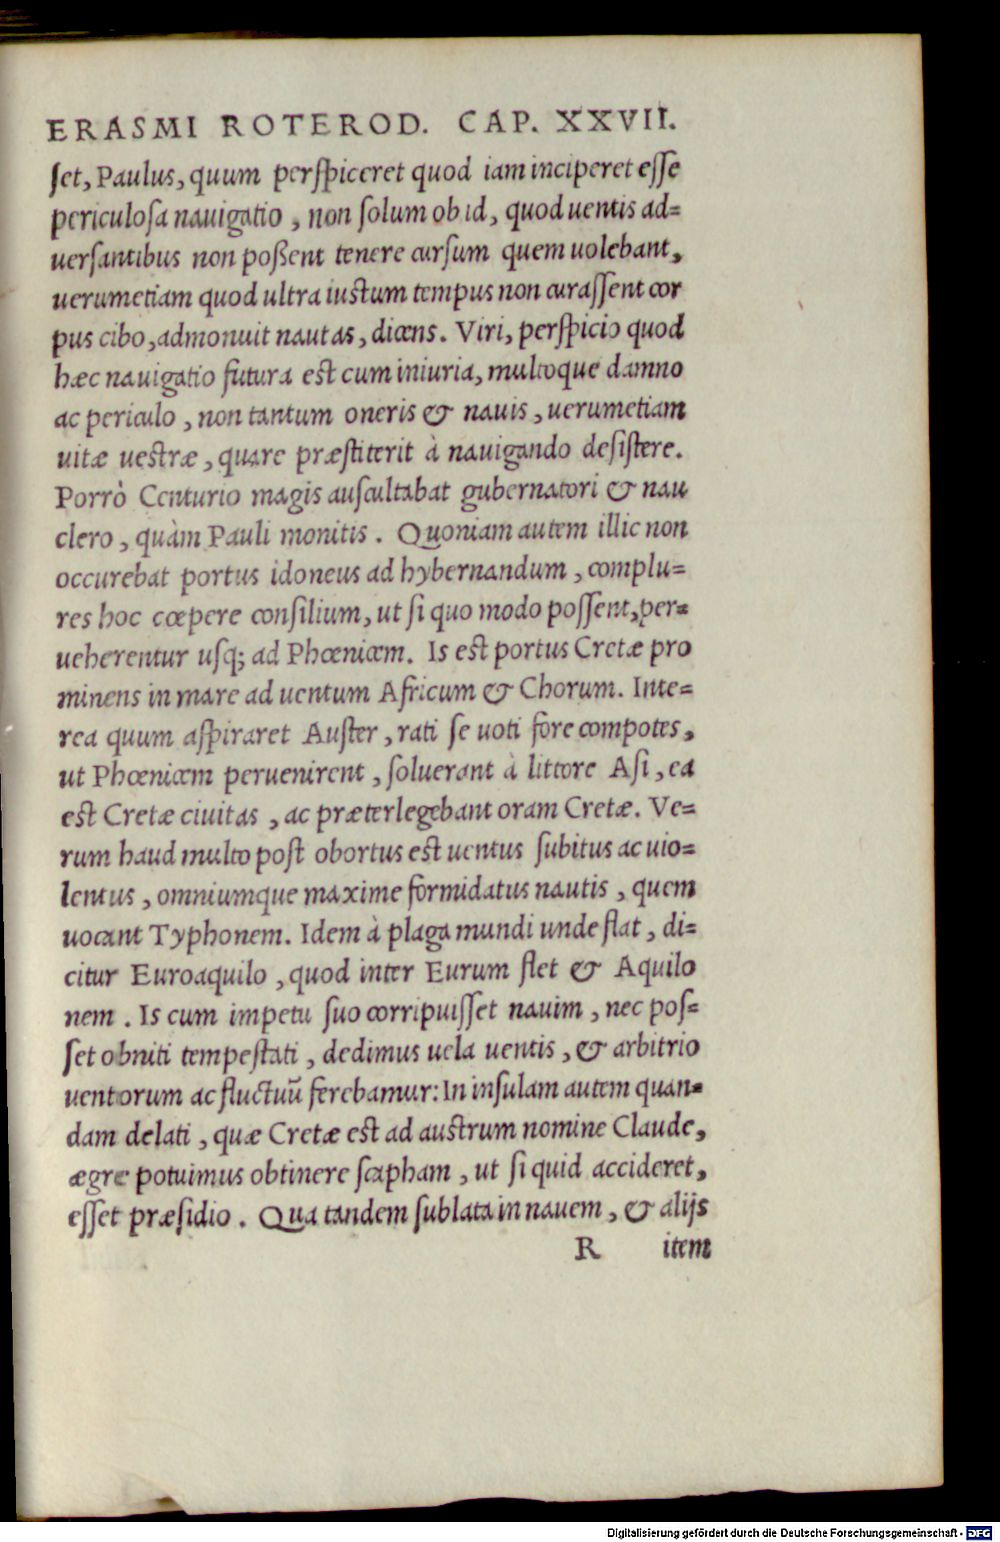 ERASMI ROTEROD. CAP. XXVII.
ſet, Paulus, quum perſpiceret quod iam inciperet eſſe
periculoſa nauigatio, non ſolum ob id, quod uentis ad=
uerſantibus non poßent tenere curſum quem uolebant,
uerumetiam quod ultra iustum tempus non curaſſent cor
pus cibo, admonuit nautas, dicens. Viri, perſpicio quod
hæc nauigatio futura est cum iniuria, multoque damno
ac periculo, non tantum oneris & nauis, uerumetiam
uitæ uestræ, quare præſtiterit à nauigando deſiſtere.
Porrò Centurio magis auſcultabat gubernatori & nau
clero, quàm Pauli monitis. Quoniam autem illic non
occurebat portus idoneus ad hybernandum, complu=
res hoc cœpere conſilium, ut ſi quo modo poſſent, per=
ueherentur uſq; ad Phœnicem. Is est portus Cretæ pro
minens in mare ad uentum Africum & Chorum. Inte=
rea quum aſpiraret Auſter, rati ſe uoti fore compotes,
ut Phœnicem peruenirent, ſoluerant à littore Aſi, ea
est Cretæ ciuitas, ac præterlegebant oram Cretæ. Ve=
rum haud multo poſt obortus est uentus ſubitus ac uio=
lentus, omniumque maxime formidatus nautis, quem
uocant Typhonem. Idem à plaga mundi unde flat, di=
citur Euroaquilo, quod inter Eurum flet & Aquilo
nem. Is cum impetu ſuo corripuiſſet nauim, nec poſ=
ſet obniti tempeſtati, dedimus uela uentis, & arbitrio
uentorum ac fluctuū ferebamur: In inſulam autem quan=
dam delati, quæ Cretæ est ad austrum nomine Claude,
ægre potuimus obtinere ſcapham, ut ſi quid accideret,
eſſet præſidio. Qua tandem ſublata in nauem, & alijs
R item
Digitalisierung gefördert durch die Deutsche Forschungsgemeinschaft - DFG